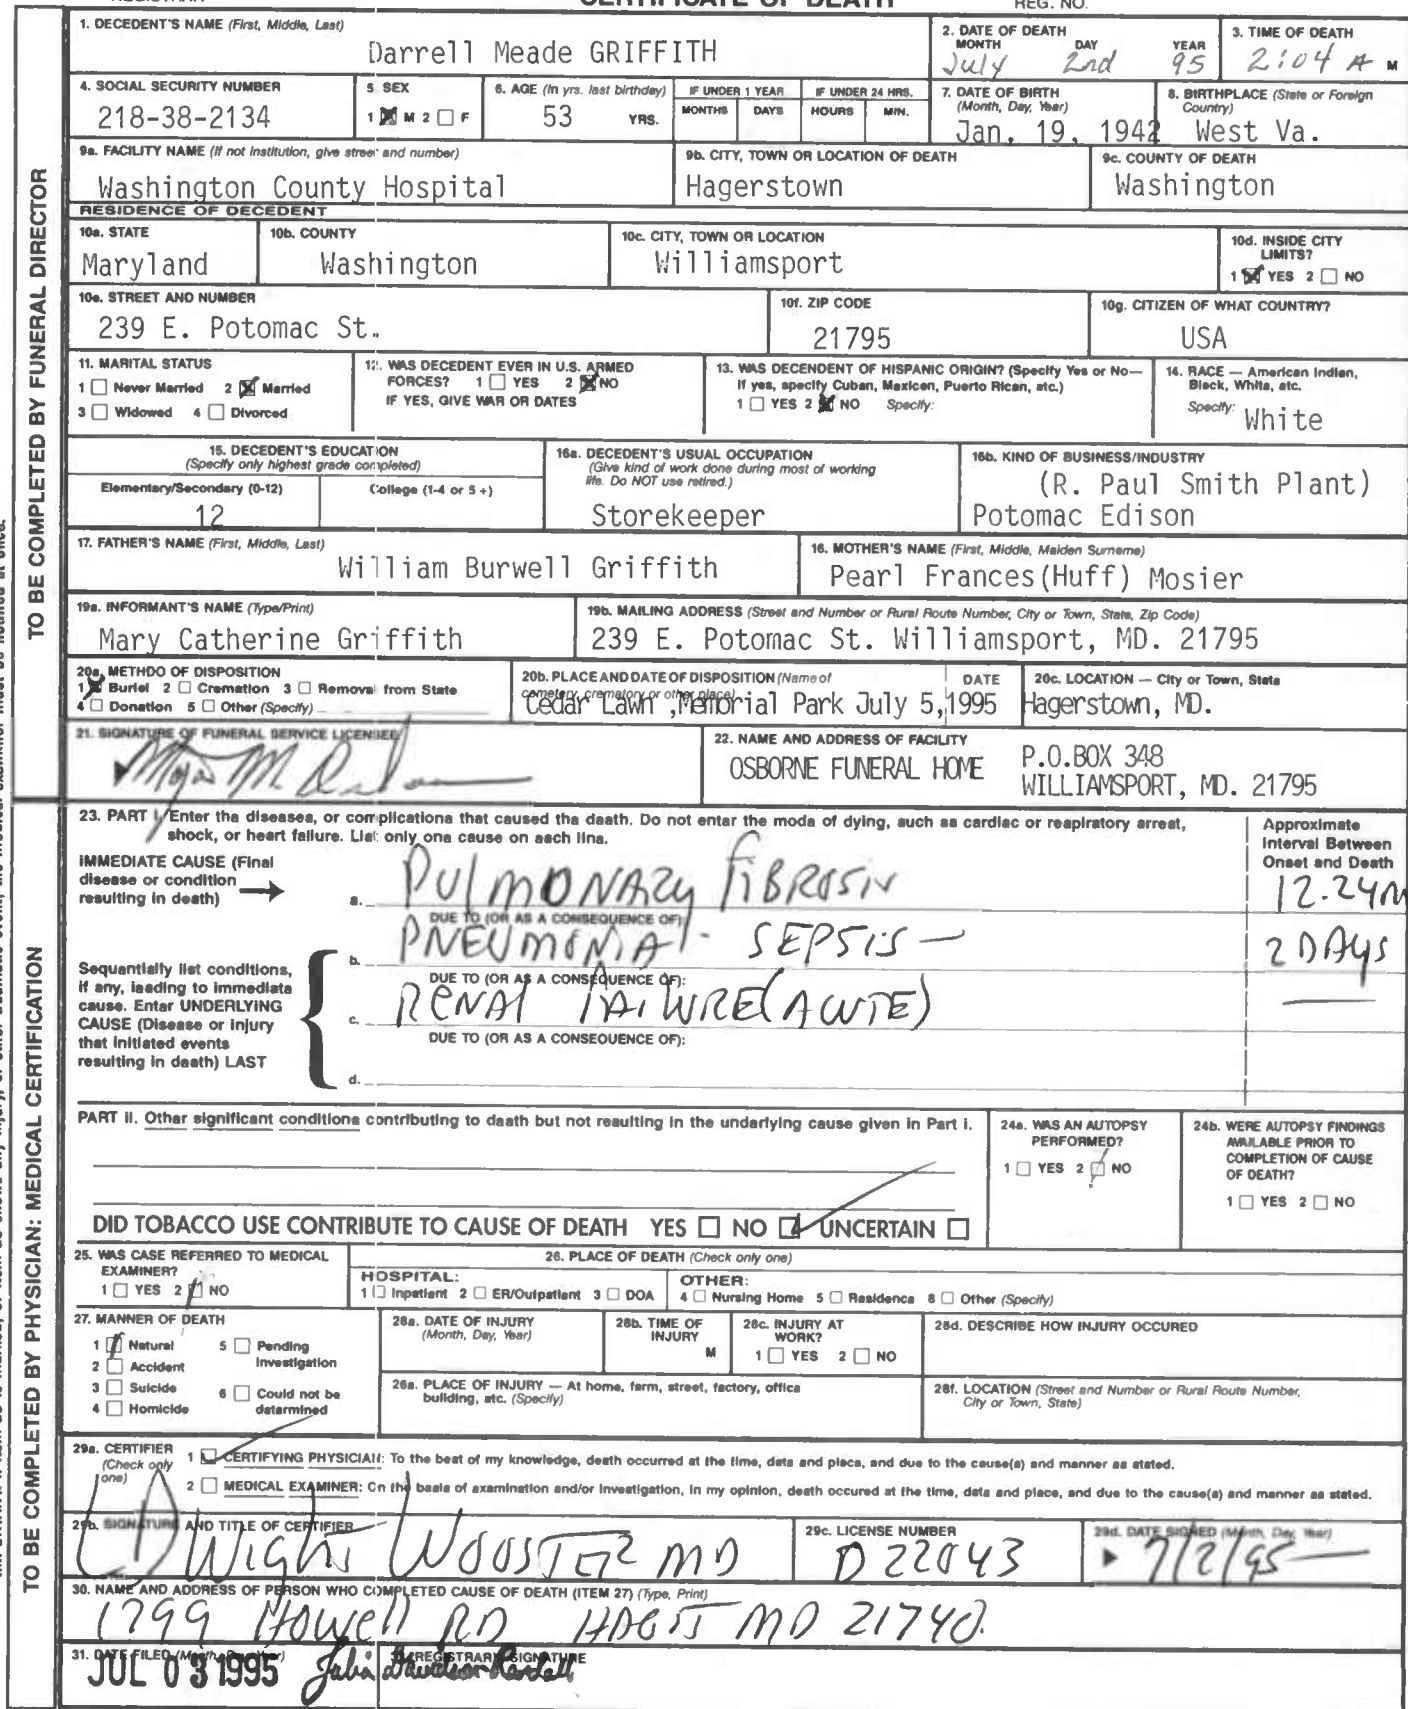 CERTIFICATE OF DEATH
REG. NO.
1. DECEDENT'S NAME (First, Middle, Last)
Darrell Meade GRIFFITH
2. DATE OF DEATH
MONTH DAY YEAR
July 2nd 95
3. TIME OF DEATH
2:04 A M
4. SOCIAL SECURITY NUMBER
218-38-2134
5. SEX
1 M 2 F
6. AGE (In yrs. last birthday)
53 YRS.
IF UNDER 1 YEAR
MONTHS DAYS
IF UNDER 24 HRS.
HOURS MIN.
7. DATE OF BIRTH
(Month, Day, Year)
Jan. 19, 1942
8. BIRTHPLACE (State or Foreign
Country)
West Va.
9a. FACILITY NAME (If not institution, give street and number)
Washington County Hospital
9b. CITY, TOWN OR LOCATION OF DEATH
Hagerstown
9c. COUNTY OF DEATH
Washington
RESIDENCE OF DECEDENT
10a. STATE
Maryland
10b. COUNTY
Washington
10c. CITY, TOWN OR LOCATION
Williamsport
10d. INSIDE CITY
LIMITS?
1 YES 2 NO
10e. STREET AND NUMBER
239 E. Potomac St.
10f. ZIP CODE
21795
10g. CITIZEN OF WHAT COUNTRY?
USA
11. MARITAL STATUS
1 Never Married 2 Married
3 Widowed 4 Divorced
12. WAS DECEDENT EVER IN U.S. ARMED
FORCES? 1 YES 2 NO
IF YES, GIVE WAR OR DATES
13. WAS DECENDENT OF HISPANIC ORIGIN? (Specify Yes or No—
If yes, specify Cuban, Mexican, Puerto Rican, etc.)
1 YES 2 NO Specify:
14. RACE — American Indian,
Black, White, etc.
Specify: White
15. DECEDENT'S EDUCATION
(Specify only highest grade completed)
Elementary/Secondary (0-12)
12
College (1-4 or 5+)
16a. DECEDENT'S USUAL OCCUPATION
(Give kind of work done during most of working
life. Do NOT use retired.)
Storekeeper
16b. KIND OF BUSINESS/INDUSTRY
(R. Paul Smith Plant)
Potomac Edison
17. FATHER'S NAME (First, Middle, Last)
William Burwell Griffith
16. MOTHER'S NAME (First, Middle, Maiden Surname)
Pearl Frances(Huff) Mosier
19a. INFORMANT'S NAME (Type/Print)
Mary Catherine Griffith
19b. MAILING ADDRESS (Street and Number or Rural Route Number, City or Town, State, Zip Code)
239 E. Potomac St. Williamsport, MD. 21795
20a. METHDO OF DISPOSITION
1 Buriel 2 Cremation 3 Removal from State
4 Donation 5 Other (Specify)
20b. PLACE AND DATE OF DISPOSITION (Name of
cemetery, crematory or other place)
DATE
Cedar Lawn ,Memorial Park July 5, 1995
20c. LOCATION — City or Town, State
Hagerstown, MD.
21. SIGNATURE OF FUNERAL SERVICE LICENSEE
22. NAME AND ADDRESS OF FACILITY
OSBORNE FUNERAL HOME P.O.BOX 348
WILLIAMSPORT, MD. 21795
23. PART I. Enter the diseases, or complications that caused the death. Do not enter the mode of dying, such as cardiac or respiratory arrest,
shock, or heart failure. List only one cause on each line.
Approximate
Interval Between
Onset and Death
IMMEDIATE CAUSE (Final
disease or condition
resulting in death)
a. PULMONARY FIBROSIS 12.24m
DUE TO (OR AS A CONSEQUENCE OF):
b. PNEUMONIA - SEPSIS — 2 DAYS
DUE TO (OR AS A CONSEQUENCE OF):
c. RENAL FAILURE (ACUTE) —
DUE TO (OR AS A CONSEQUENCE OF):
d.
Sequentially list conditions,
if any, leading to immediate
cause. Enter UNDERLYING
CAUSE (Disease or injury
that initiated events
resulting in death) LAST
PART II. Other significant conditions contributing to death but not resulting in the underlying cause given in Part I.
24a. WAS AN AUTOPSY
PERFORMED?
1 YES 2 NO
24b. WERE AUTOPSY FINDINGS
AVAILABLE PRIOR TO
COMPLETION OF CAUSE
OF DEATH?
1 YES 2 NO
DID TOBACCO USE CONTRIBUTE TO CAUSE OF DEATH YES NO UNCERTAIN
25. WAS CASE REFERRED TO MEDICAL
EXAMINER?
1 YES 2 NO
26. PLACE OF DEATH (Check only one)
HOSPITAL:
1 Inpatient 2 ER/Outpatient 3 DOA
OTHER:
4 Nursing Home 5 Residence 8 Other (Specify)
27. MANNER OF DEATH
1 Natural 5 Pending
Investigation
2 Accident
3 Suicide 6 Could not be
determined
4 Homicide
28a. DATE OF INJURY
(Month, Day, Year)
28b. TIME OF
INJURY
M
28c. INJURY AT
WORK?
1 YES 2 NO
28d. DESCRIBE HOW INJURY OCCURED
26a. PLACE OF INJURY — At home, farm, street, factory, office
building, etc. (Specify)
28f. LOCATION (Street and Number or Rural Route Number,
City or Town, State)
29a. CERTIFIER
(Check only
one)
1 CERTIFYING PHYSICIAN: To the best of my knowledge, death occurred at the time, date and place, and due to the cause(s) and manner as stated.
2 MEDICAL EXAMINER: On the basis of examination and/or investigation, in my opinion, death occured at the time, date and place, and due to the cause(s) and manner as stated.
29b. SIGNATURE AND TITLE OF CERTIFIER
Dwight Wooster MD
29c. LICENSE NUMBER
D 22043
29d. DATE SIGNED (Month, Day, Year)
7/2/95
30. NAME AND ADDRESS OF PERSON WHO COMPLETED CAUSE OF DEATH (ITEM 27) (Type, Print)
1799 Howell RD HAGST MD 21740.
31. DATE FILED (Month, Day, Year)
JUL 03 1995
REGISTRAR'S SIGNATURE
TO BE COMPLETED BY FUNERAL DIRECTOR
TO BE COMPLETED BY PHYSICIAN: MEDICAL CERTIFICATION